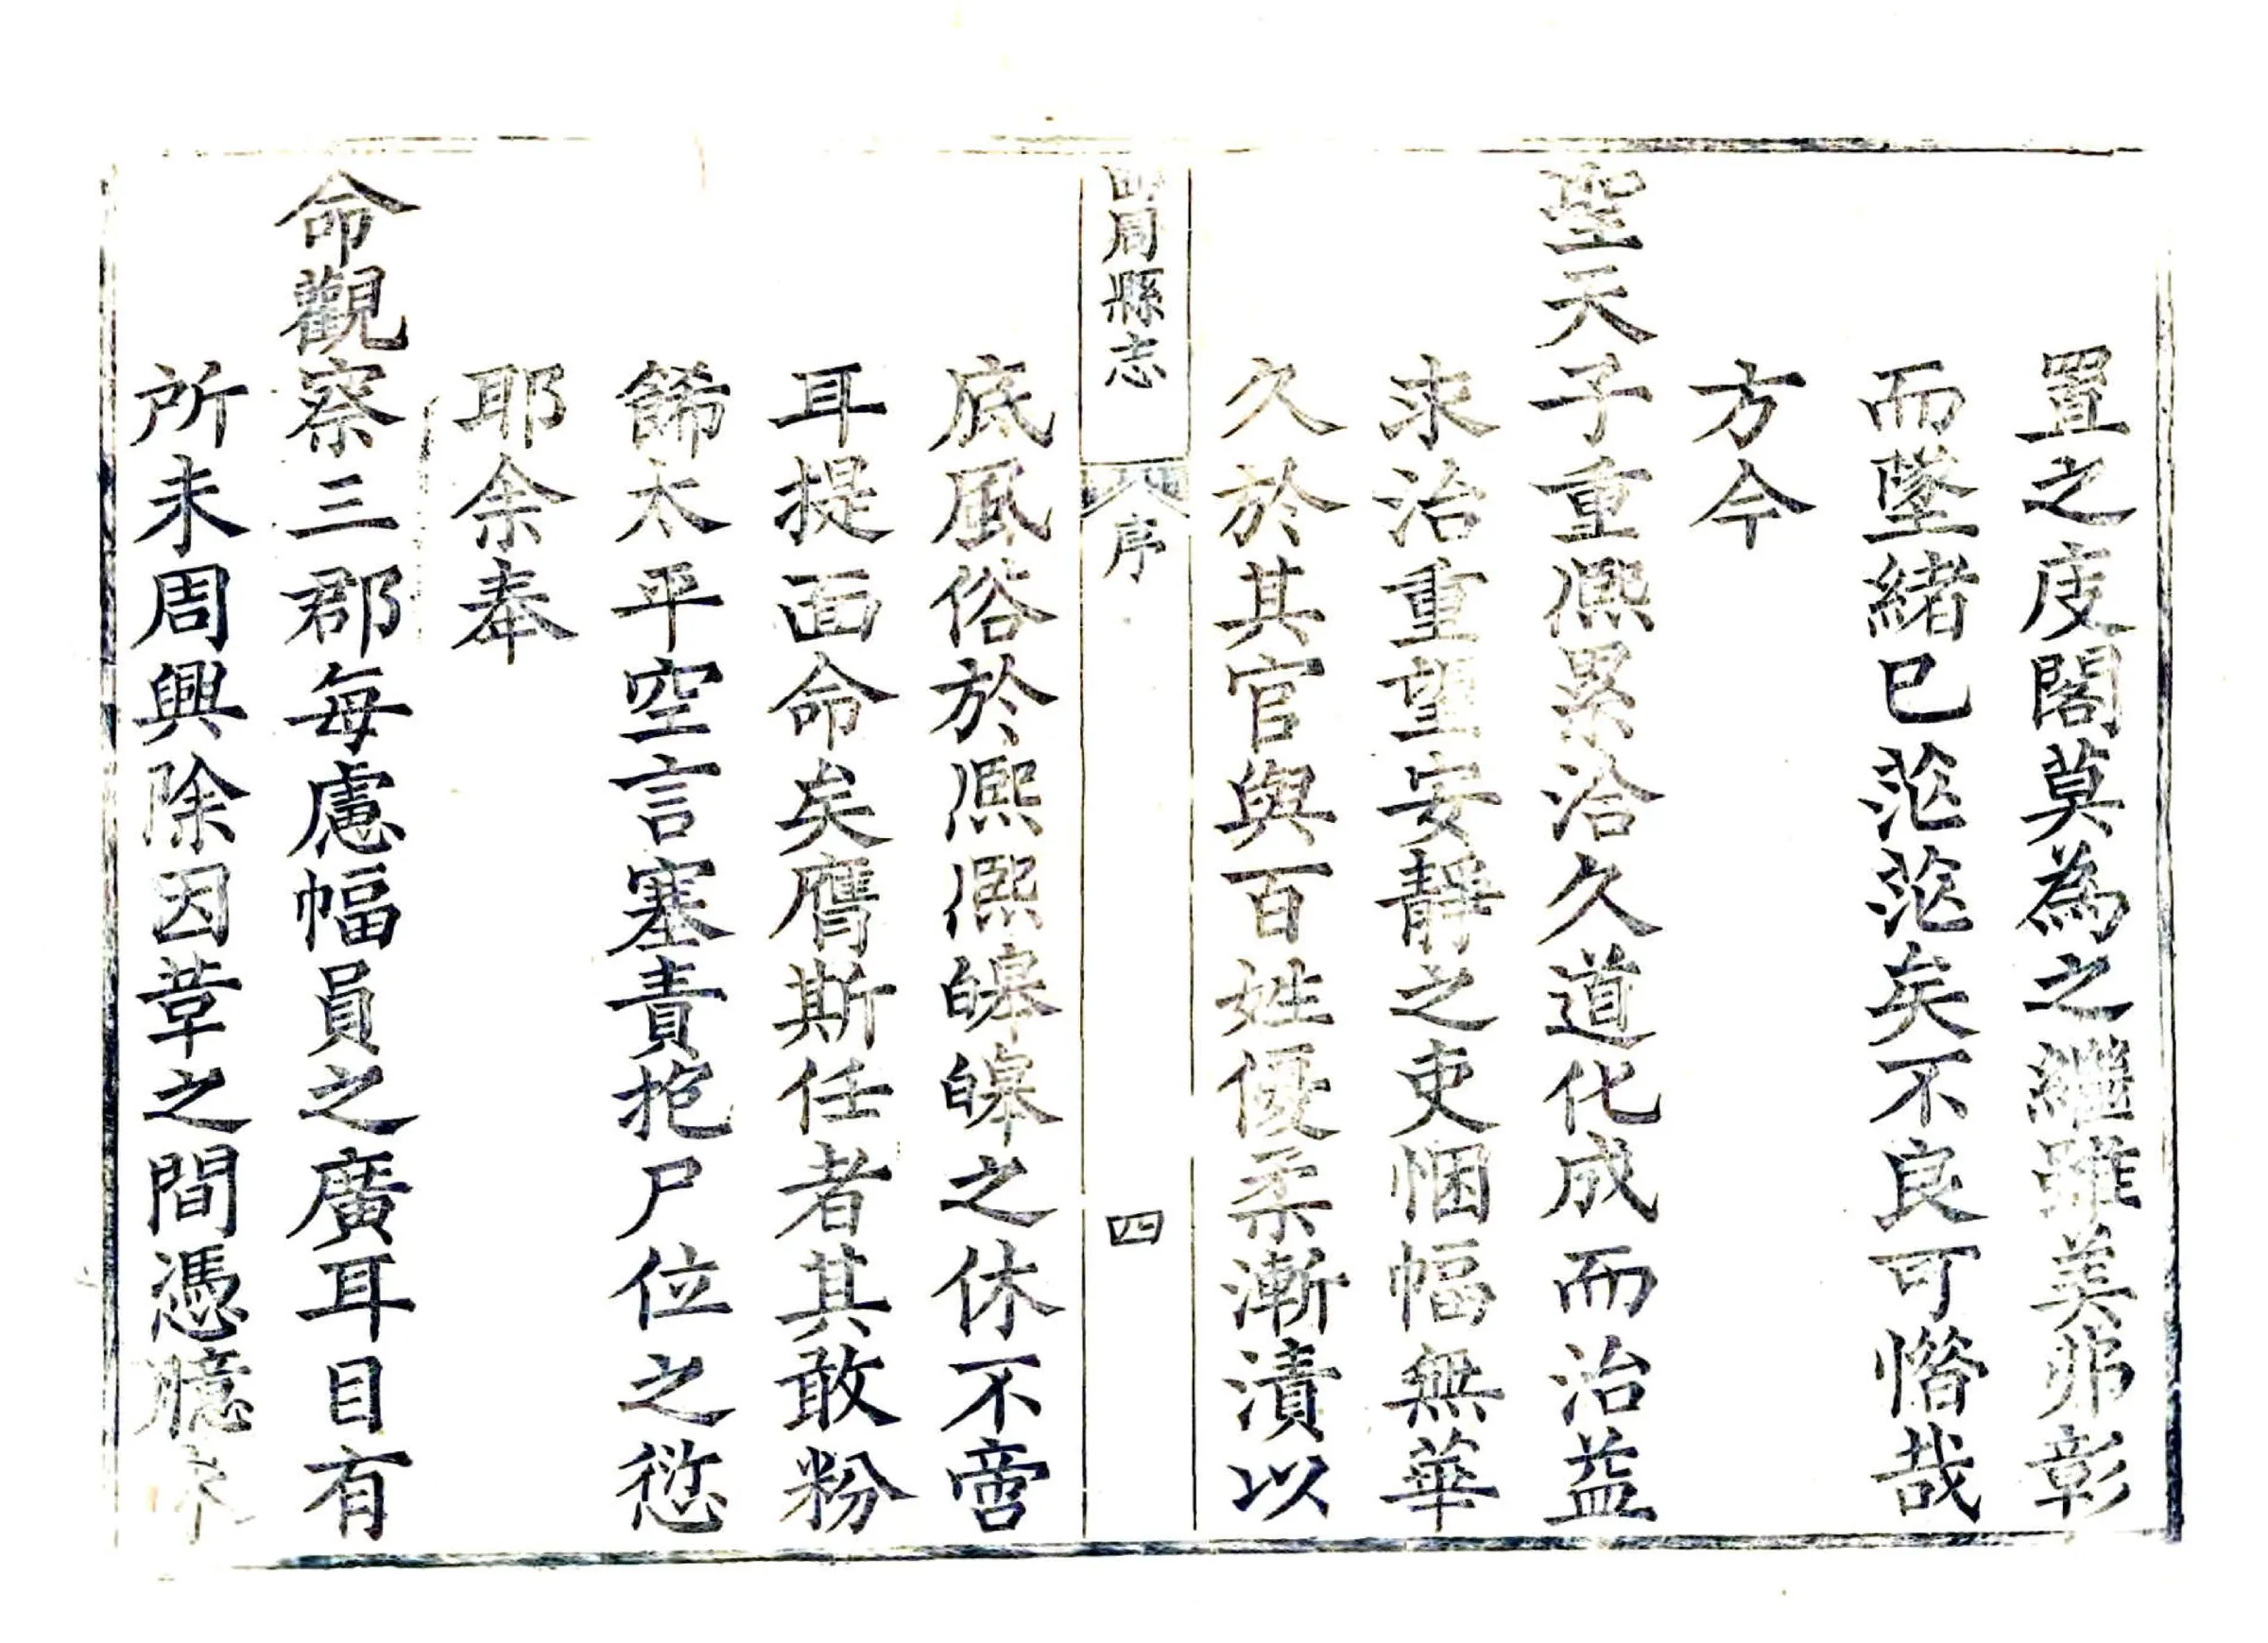 置之庋閣莫為之繼雖美弗彰
而墜緒已茫茫矣不良可惜哉
方今
聖天子重熙累洽久道化成而治益
求治重望安靜之吏悃幅無華
久於其官與百姓優柔漸漬以
周縣志 序 四
底風俗於熙熙皞皞之休不啻
耳提面命矣膺斯任者其敢粉
餙太平空言塞責抱尸位之愆
耶余奉
命觀察三郡每慮幅員之廣耳目有
所未周興除因革之間憑臆